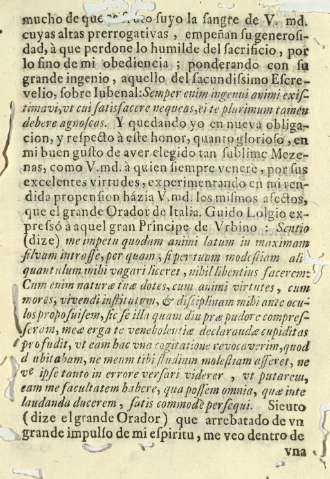 mucho de que suyo la sangre de V. md.
cuyas altas prerrogativas, empeñan su generosi-
dad, à que perdone lo humilde del sacrificio, por
lo fino de mi obediencia; ponderando con su
grande ingenio, aquello del facundissimo Escre-
velio, sobre Iubenal: Semper enim ingenui animi exis-
timavi, vt cui satisfacere nequeas, ei te plurimum tamen
debere agnoscas. Y quedando yo en nueva obliga-
cion, y respecto à este honor, quanto glorioso, en
mi buen gusto de aver elegido tan sublime Meze-
nas, como V. md. à quien siempre venerè, por sus
excelentes virtudes, experimentando en mi ren-
dida propension házia V. md. los mismos afectos,
que el grande Orador de Italia. Guido Lolgio ex-
pressò à aquel gran Principe de Vrbino: Sentio
(dize) me impetu quodam animi latum in maximam
silvam introsse, per quam, si per tuam modestiam ali
quantulum mihi vagari liceret, nihil libentius facerem:
Cum enim naturæ tuæ dotes, cum animi virtutes, cum
mores, vivendi institutum, & disciplinam mihi ante ocu-
los proposuissem, sic se illa quam diu præ pudore compres-
seram, mea erga te venebolentiæ declarandæ cupiditas
profudit, vt eam hac vna cogitatione revocaverim, quod
dubitabam, ne meum tibi studium molestiam afferet, ne
ve ipse tanto in errore versari viderer, vt putarem,
eam me facultatem habere, qua possem omnia, quæ inte
laudanda ducerem, satis commodè persequi. Siento
(dize el grande Orador) que arrebatado de vn
grande impulso de mi espiritu, me veo dentro de
vna